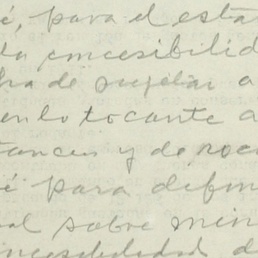 é, para el esta
da incesibilid
ha de sujetar a
en lo tocante a
tances y de no
é para defin
al sobre min
incesibilidad d